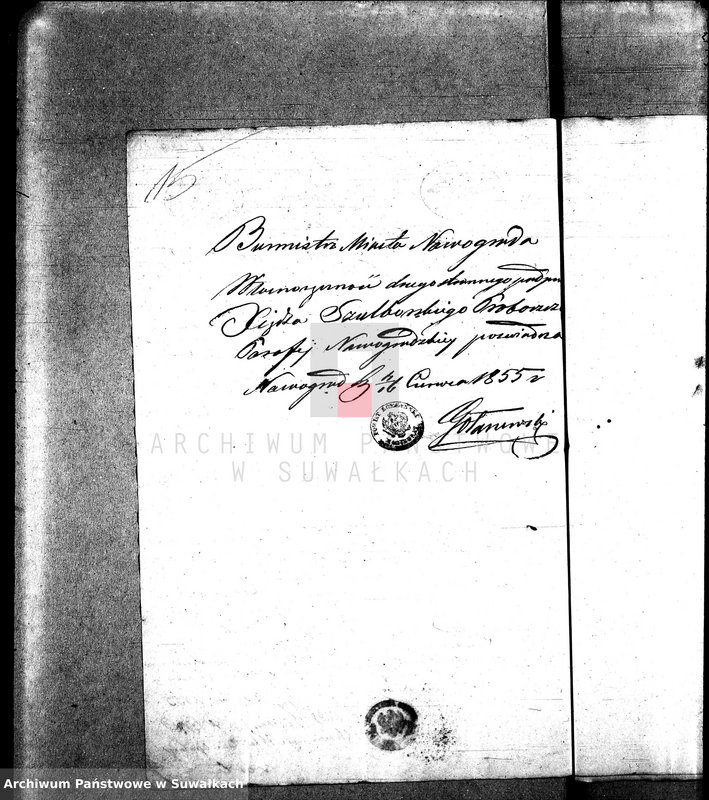 15
Burmistrz Miasta Nowogroda
Własnoręczność drugostronnego podpisu
Xiędza Szulborskiego Probosz
Parafij Nowogrodzkiej poświadcza
Nowogród d 4/16 Czerwca 1855 r
ARCHIWUM PAŃSTWOWE
W SUWAŁKACH
Archiwum Państwowe w Suwałkach